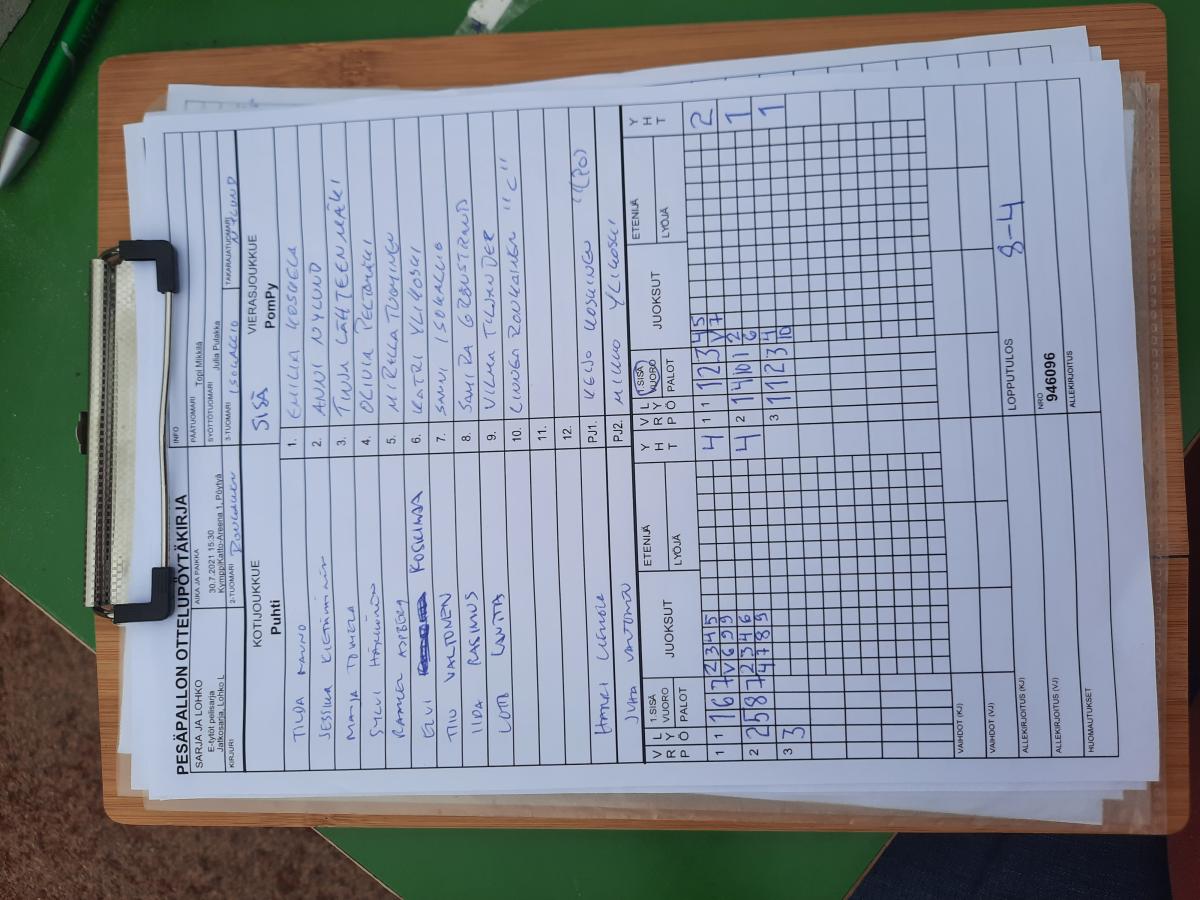 PESÄPALLON OTTELUPÖYTÄKIRJA
SARJA JA LOHKO
E-tytöt pelisarja
Jatkosarja, Lohko L
AIKA JA PAIKKA
30.7.2021 15:30
KymppiKatto-Areena 1, Pöytyä
INFO
PÄÄTUOMARI Topi Mikkilä
SYÖTTÖTUOMARI Julia Pulakka
KIRJURI
2-TUOMARI
3-TUOMARI ISOKALLIO
TAKARAJATUOMARI NYLUND
KOTIJOUKKUE
Puhti
SISÄ
VIERASJOUKKUE
PomPy
TILDA 1. EMILIA KOSKELA
JESSIKA 2. ANNI NYLUND
MAIJA TOMERA 3. TUUA LÄHTEENMÄKI
SYLVI 4. OLIVIA PELTOMÄKI
ASPBERG 5. MIRELLA TUOMINEN
ELVI KOSKINEN 6. KATRI YLIKOSKI
TIIU VALTONEN 7. SANNI ISOKALLIO
IIDA RASIMUS 8. SAMIRA GRÖNSTRAND
LOTTA LANTTA 9. VILMA TILANDER
10. LINNEA ROUKAINEN "C"
11.
12.
HARRI PJ1. KEIJO KOSKINEN (PO)
JUHA VALTONEN PJ2. MIKKO YLIKOSKI
V R P L Y Ö 1.SISÄ VUORO PALOT JUOKSUT ETENIJÄ LYÖJÄ Y H T V R P L Y Ö 1.SISÄ VUORO PALOT JUOKSUT ETENIJÄ LYÖJÄ Y H T
1 1 1 6 7 2 3 4 5 4 1 1 1 2 3 4 5 2
7 V 6 9 9 V 7
2 2 5 8 7 2 3 4 6 4 2 1 4 10 1 2 1
4 7 8 9 6
3 3 3 1 1 2 3 4 1
10
VAIHDOT (KJ)
VAIHDOT (VJ)
ALLEKIRJOITUS (KJ) LOPPUTULOS 8-4
ALLEKIRJOITUS (VJ) NRO 946096
HUOMAUTUKSET ALLEKIRJOITUS